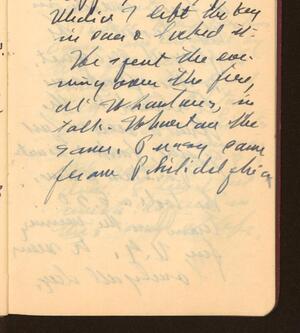 I left the key
in door & locked it.
We spent the eve-
ning over the fire,
at Whartons, in
talk. Wharton the
same. Penney came
from Philidelphia